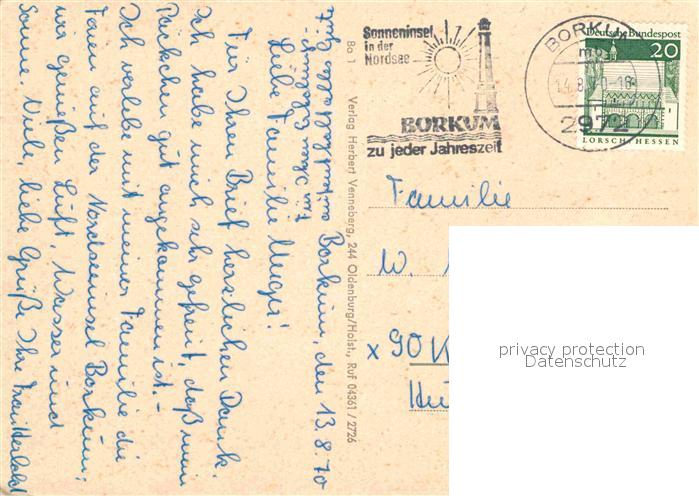 Borkum, den 13.8.70
Liebe Familie Unger!
Für Ihren Brief herzlichen Dank.
Ich habe mich sehr gefreut, daß mein
Päckchen gut angekommen ist. -
Ich verlebe mit meiner Familie die
Ferien auf der Nordseeinsel Borkum,
wir genießen Luft, Wasser und
Sonne. Viele, liebe Grüße Ihre
alles Gute
Bo 1
Verlag Herbert Venneberg, 244 Oldenburg/Holst., Ruf 04361 / 2726
Sonneninsel
in der
Nordsee
BORKUM
zu jeder Jahreszeit
BORKUM
14.8.70-18
2972
Deutsche Bundespost
20
LORSCH/HESSEN
Familie
W.
x 90
privacy protection
Datenschutz